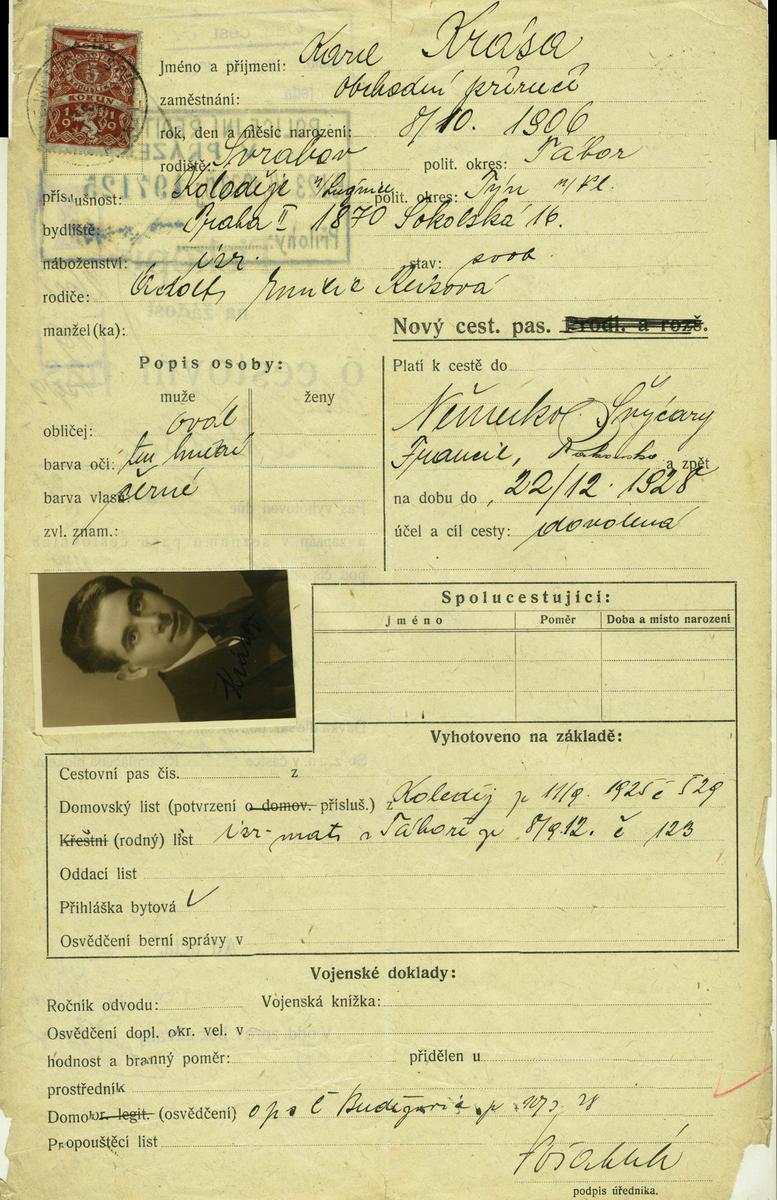 KOLEK
5
KORUN
Jméno a příjmení: Karel Krása
zaměstnání: obchodní příručí
rok, den a měsíc narození: 8/10. 1906
rodiště: polit. okres: Tábor
příslušnost: Koloděje n/Lužnicí polit. okres: Týn n/Vl.
bydliště: Praha II 1870 Sokolská 16.
náboženství: izr. stav: svob
rodiče: Adolf, Emilie
manžel(ka):
Nový cest. pas. Prodl. a rozš.
Popis osoby:
muže ženy
obličej: ovál
barva očí: tm hnědé
barva vlasů: černé
zvl. znam.:
Platí k cestě do
Německo, Švýcary
Francie, Rakousko a zpět
na dobu do 22/12. 1928
účel a cíl cesty: dovolená
Krása
Spolucestující:
Jméno Poměr Doba a místo narození
Vyhotoveno na základě:
Cestovní pas čís. z
Domovský list (potvrzení o domov. přísluš.) z Koloděj 11/9. 1925 č 529
Křestní (rodný) list izr. mat. v Táboře 8/9 12. č 123
Oddací list
Přihláška bytová ✓
Osvědčení berní správy v
Vojenské doklady:
Ročník odvodu: Vojenská knížka:
Osvědčení dopl. okr. vel. v
hodnost a branný poměr: přidělen u
prostředník
Domobr. legit. (osvědčení) ops Č Budějovice
Propouštěcí list
podpis úředníka.